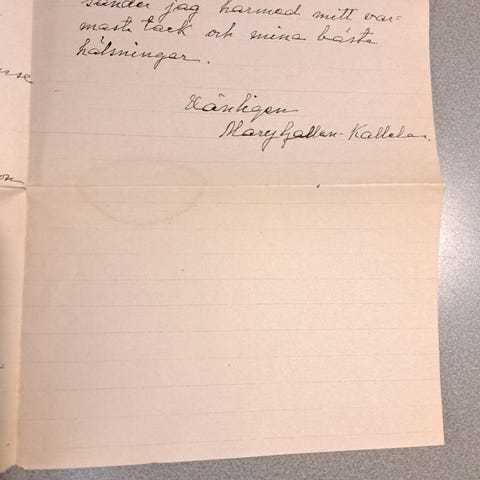 sänder jag härmed mitt var=
maste tack och mina bästa
hälsningar.
Vänligen
Mary Gallen-Kallela.